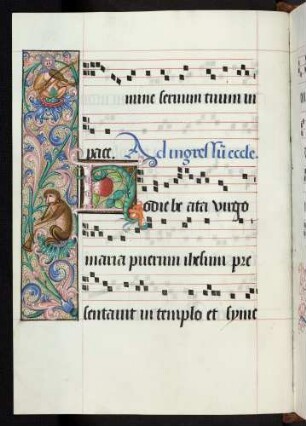 mine seruum tuum in
pace. Ad ingressū eccle.
Hodie be ata uirgo
maria puerum ihesum pre
sentauit in templo et syme